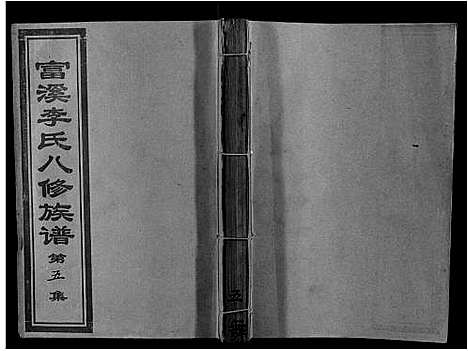 富溪李氏八修族谱
第五集